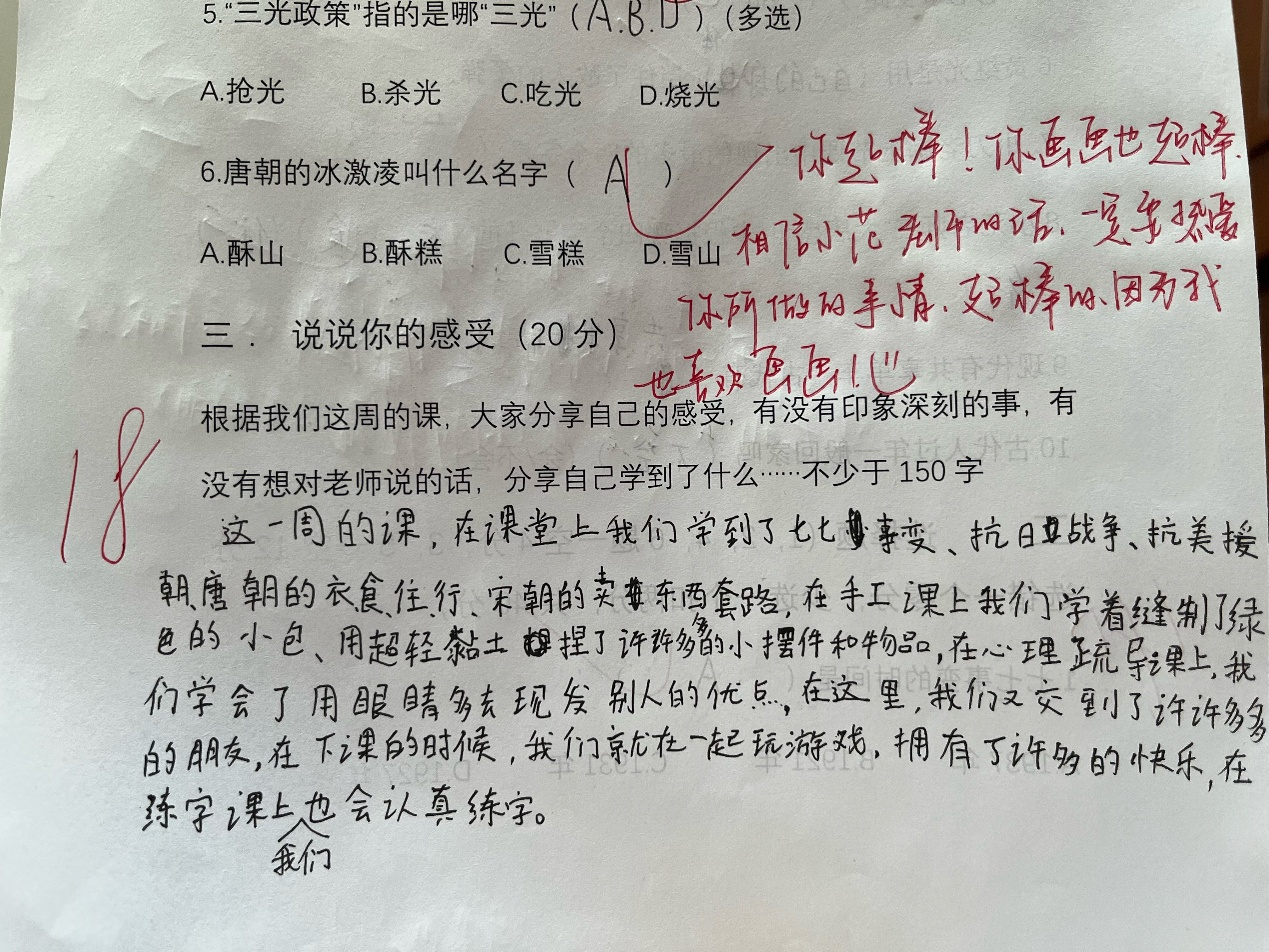 5.“三光政策”指的是哪“三光”（A.B.D）（多选）
A.抢光 B.杀光 C.吃光 D.烧光
6.唐朝的冰激凌叫什么名字（ A ）
A.酥山 B.酥糕 C.雪糕 D.雪山
你超棒！你画画也超棒.
相信小范老师的话、一定要热爱
你所做的事情、超棒的、因为我
也喜欢画画！
三． 说说你的感受（20 分）
根据我们这周的课，大家分享自己的感受，有没有印象深刻的事，有
没有想对老师说的话，分享自己学到了什么……不少于 150 字
18
这一周的课，在课堂上我们学到了七七事变、抗日战争、抗美援
朝、唐朝的衣、食、住、行、宋朝的卖东西套路，在手工课上我们学着缝制了绿
色的小包、用超轻黏土捏了许许多多的小摆件和物品，在心理疏导课上，我
们学会了用眼睛多去现发别人的优点，在这里，我们又交到了许许多多
的朋友，在下课的时候，我们就在一起玩游戏，拥有了许多的快乐，在
练字课上我们也会认真练字。